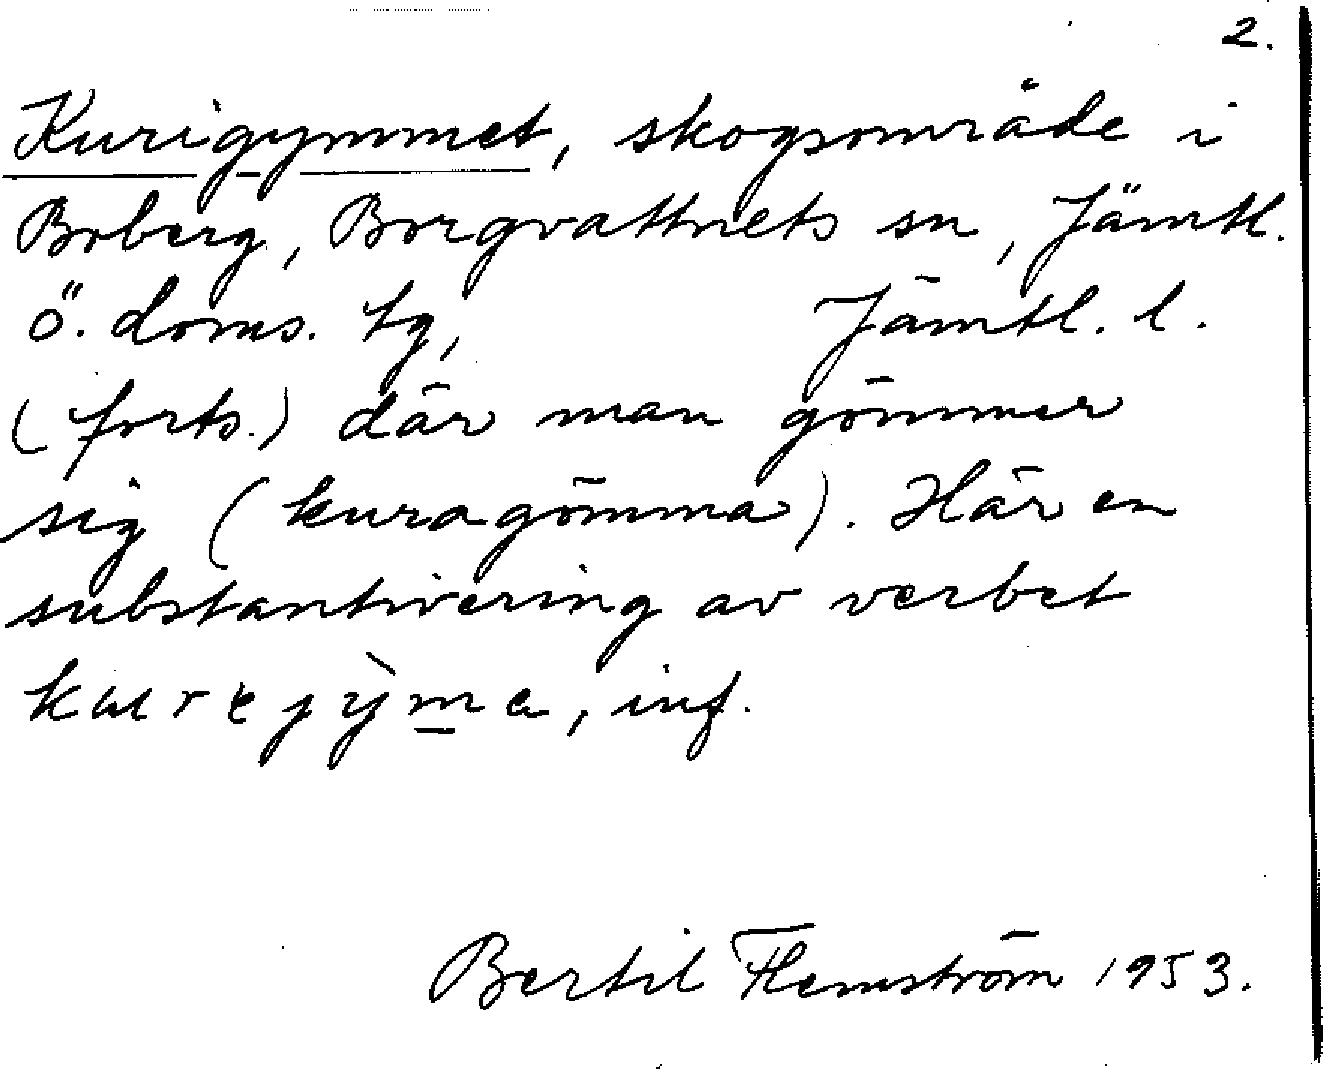 2.
Kurigymmet, skogsområde i
Boberg, Borgvattnets sn, Jämtl.
ö. doms. tg, Jämtl. l.
(forts.) där man gömmer
sig (kuragömma). Här en
substantivering av verbet
kurejỳma, inf.
Bertil Flemström 1953.